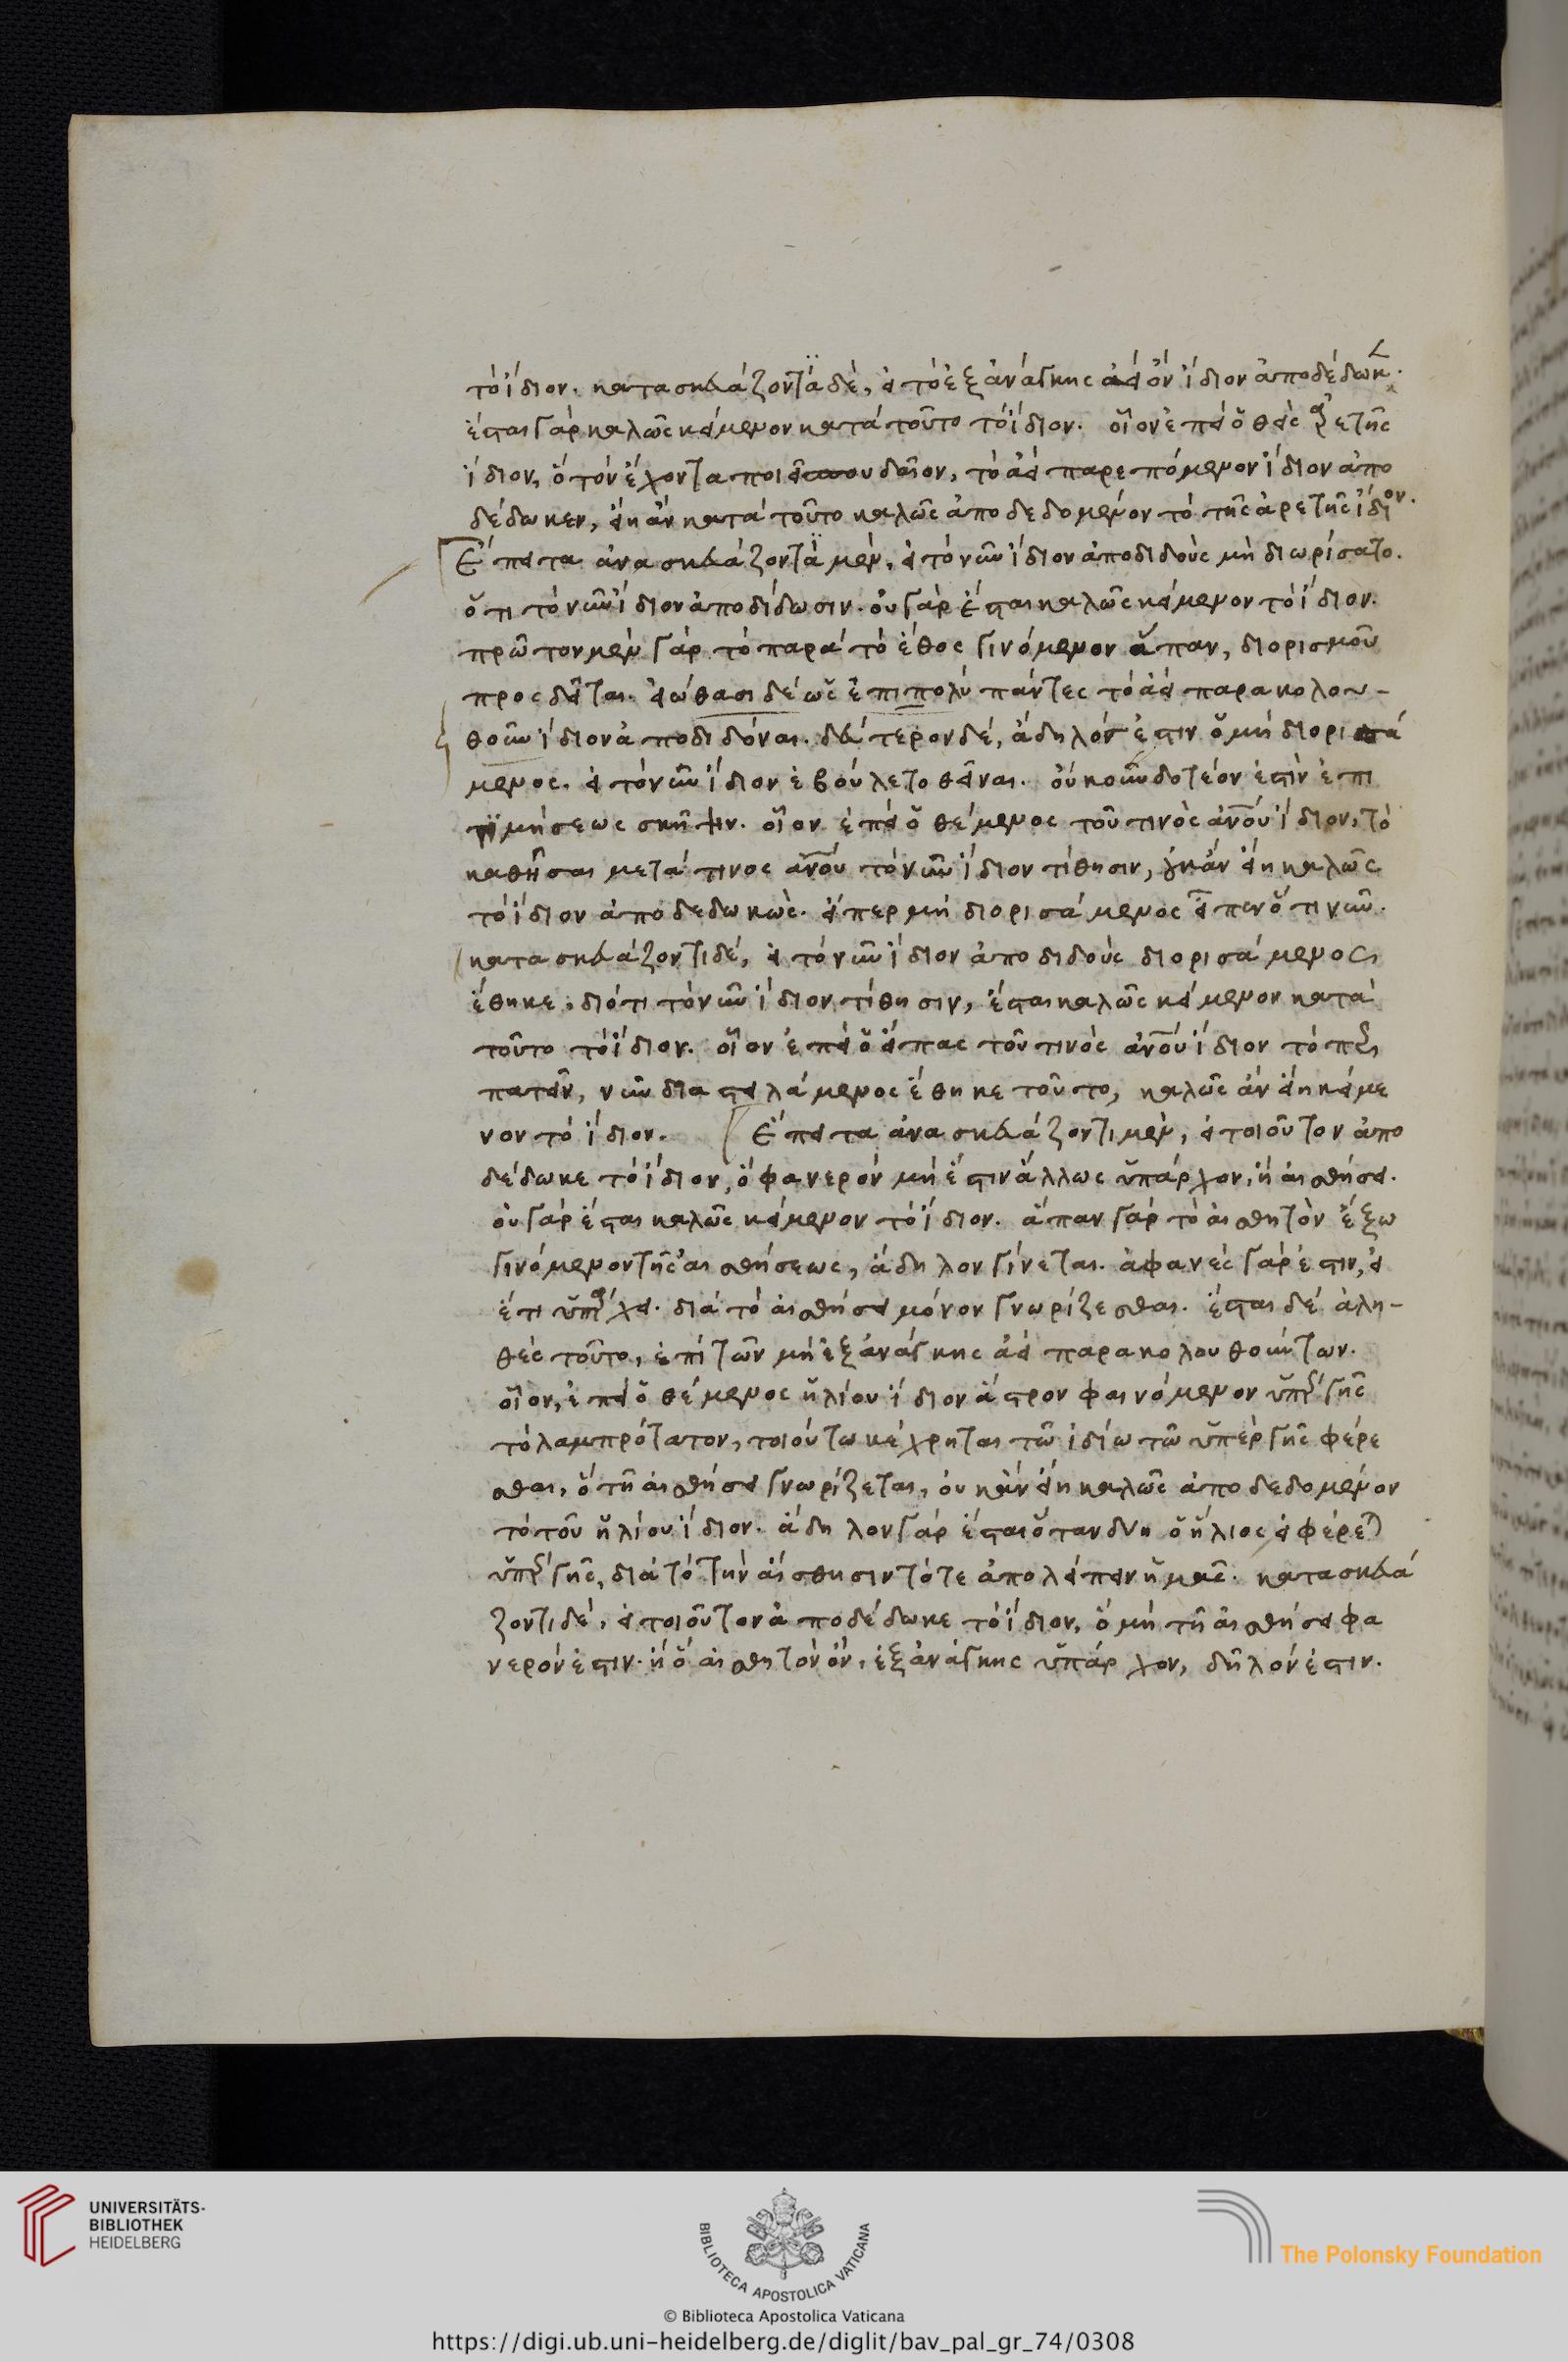 τὸ ἴδιον. κατασκευάζοντα δὲ, εἰ τὸ ἐξ ἀνάγκης ἀεὶ ὂν ἴδιον ἀποδέδωκ.
ἔσται γὰρ καλῶς κείμενον κατὰ τοῦτο τὸ ἴδιον. οἷον ἐπεὶ ὁ θεὶς ἀρετῆς
ἴδιον, ὃ τὸν ἔχοντα ποιεῖ σπουδαῖον, τὸ ἀεὶ παρεπόμενον ἴδιον ἀπο
δέδωκεν, εἴη ἂν κατὰ τοῦτο καλῶς ἀποδεδομένον τὸ τῆς ἀρετῆς ἴδιον.
Ἔπειτα ἀνασκευάζοντα μὲν, εἰ τὸ νῦν ἴδιον ἀποδιδοὺς μὴ διωρίσατο.
ὅτι τὸ νῦν ἴδιον ἀποδίδωσιν. οὐ γὰρ ἔσται καλῶς κείμενον τὸ ἴδιον.
πρῶτον μὲν γὰρ τὸ παρὰ τὸ ἔθος γινόμενον ἅπαν, διορισμοῦ
προςδεῖται. εἰώθασι δὲ ὡς ἐπιπολὺ πάντες τὸ ἀεὶ παρακολου-
θοῦν ἴδιον ἀποδιδόναι. δεύτερον δὲ, ἄδηλόν ἐστιν ὁ μὴ διορισά
μενος. εἰ τὸ νῦν ἴδιον ἐβούλετο θεῖναι. οὐκοῦν δοτέον ἐστὶν ἐπι
τιμήσεως σκῆψιν. οἷον ἐπεὶ ὁ θέμενος τοῦ τινὸς ἀνου ἴδιον, τὸ
καθῆσαι μετά τινος ἀνου τὸ νῦν ἴδιον τίθησιν, οὐκ ἂν εἴη καλῶς
τὸ ἴδιον ἀποδεδωκὼς. εἴπερ μὴ διορισάμενος εἶπεν ὅτι νῦν.
κατασκευάζοντι δὲ, εἰ τὸ νῦν ἴδιον ἀποδιδοὺς διορισάμενος
ἔθηκε, διότι τὸ νῦν ἴδιον τίθησιν, ἔσται καλῶς κείμενον κατὰ
τοῦτο τὸ ἴδιον. οἷον ἐπεὶ ὁ εἴπας τοῦ τινὸς ἀνου ἴδιον τὸ περι
πατεῖν, νῦν διαστειλάμενος ἔθηκε τοῦτο, καλῶς ἂν εἴη κείμε
νον τὸ ἴδιον. Ἔπειτα ἀνασκευάζοντι μὲν, εἰ τοιοῦτον ἀπο
δέδωκε τὸ ἴδιον, ὃ φανερὸν μὴ ἔστιν ἄλλως ὑπάρχον, ἢ αἰσθήσει.
οὐ γὰρ ἔσται καλῶς κείμενον τὸ ἴδιον. ἅπαν γὰρ τὸ αἰσθητὸν ἔξω
γινόμενον τῆς αἰσθήσεως, ἄδηλον γίνεται. ἀφανὲς γάρ ἐστιν, εἰ
ἔτι ὑπάρχει. διὰ τὸ αἰσθήσει μόνον γνωρίζεσθαι. ἔσται δὲ ἀλη-
θὲς τοῦτο, ἐπὶ τῶν μὴ ἐξ ἀνάγκης ἀεὶ παρακολουθούντων.
οἷον, ἐπεὶ ὁ θέμενος ἡλίου ἴδιον ἄστρον φαινόμενον ὑπὲρ γῆς
τὸ λαμπρότατον, τοιούτω κέχρηται τῶ ἰδίω τῶ ὑπὲρ γῆς φέρε
σθαι, ὃ τῆ αἰσθήσει γνωρίζεται, οὐκ ἂν εἴη καλῶς ἀποδεδομένον
τὸ τοῦ ἡλίου ἴδιον. ἄδηλον γὰρ ἔσται ὅταν δύνη ὁ ἥλιος εἰ φέρεται
ὑπὲρ γῆς, διὰ τὸ τὴν αἴσθησιν τότε ἀπολείπειν ἡμᾶς. κατασκευά
ζοντι δὲ, εἰ τοιοῦτον ἀποδέδωκε τὸ ἴδιον, ὃ μὴ τῆ αἰσθήσει φα
νερόν ἐστιν. ἢ ὃ αἰσθητὸν ὂν, ἐξ ἀνάγκης ὑπάρχον, δῆλόν ἐστιν.
UNIVERSITÄTS-
BIBLIOTHEK
HEIDELBERG
BIBLIOTECA APOSTOLICA VATICANA
The Polonsky Foundation
© Biblioteca Apostolica Vaticana
https://digi.ub.uni-heidelberg.de/diglit/bav_pal_gr_74/0308